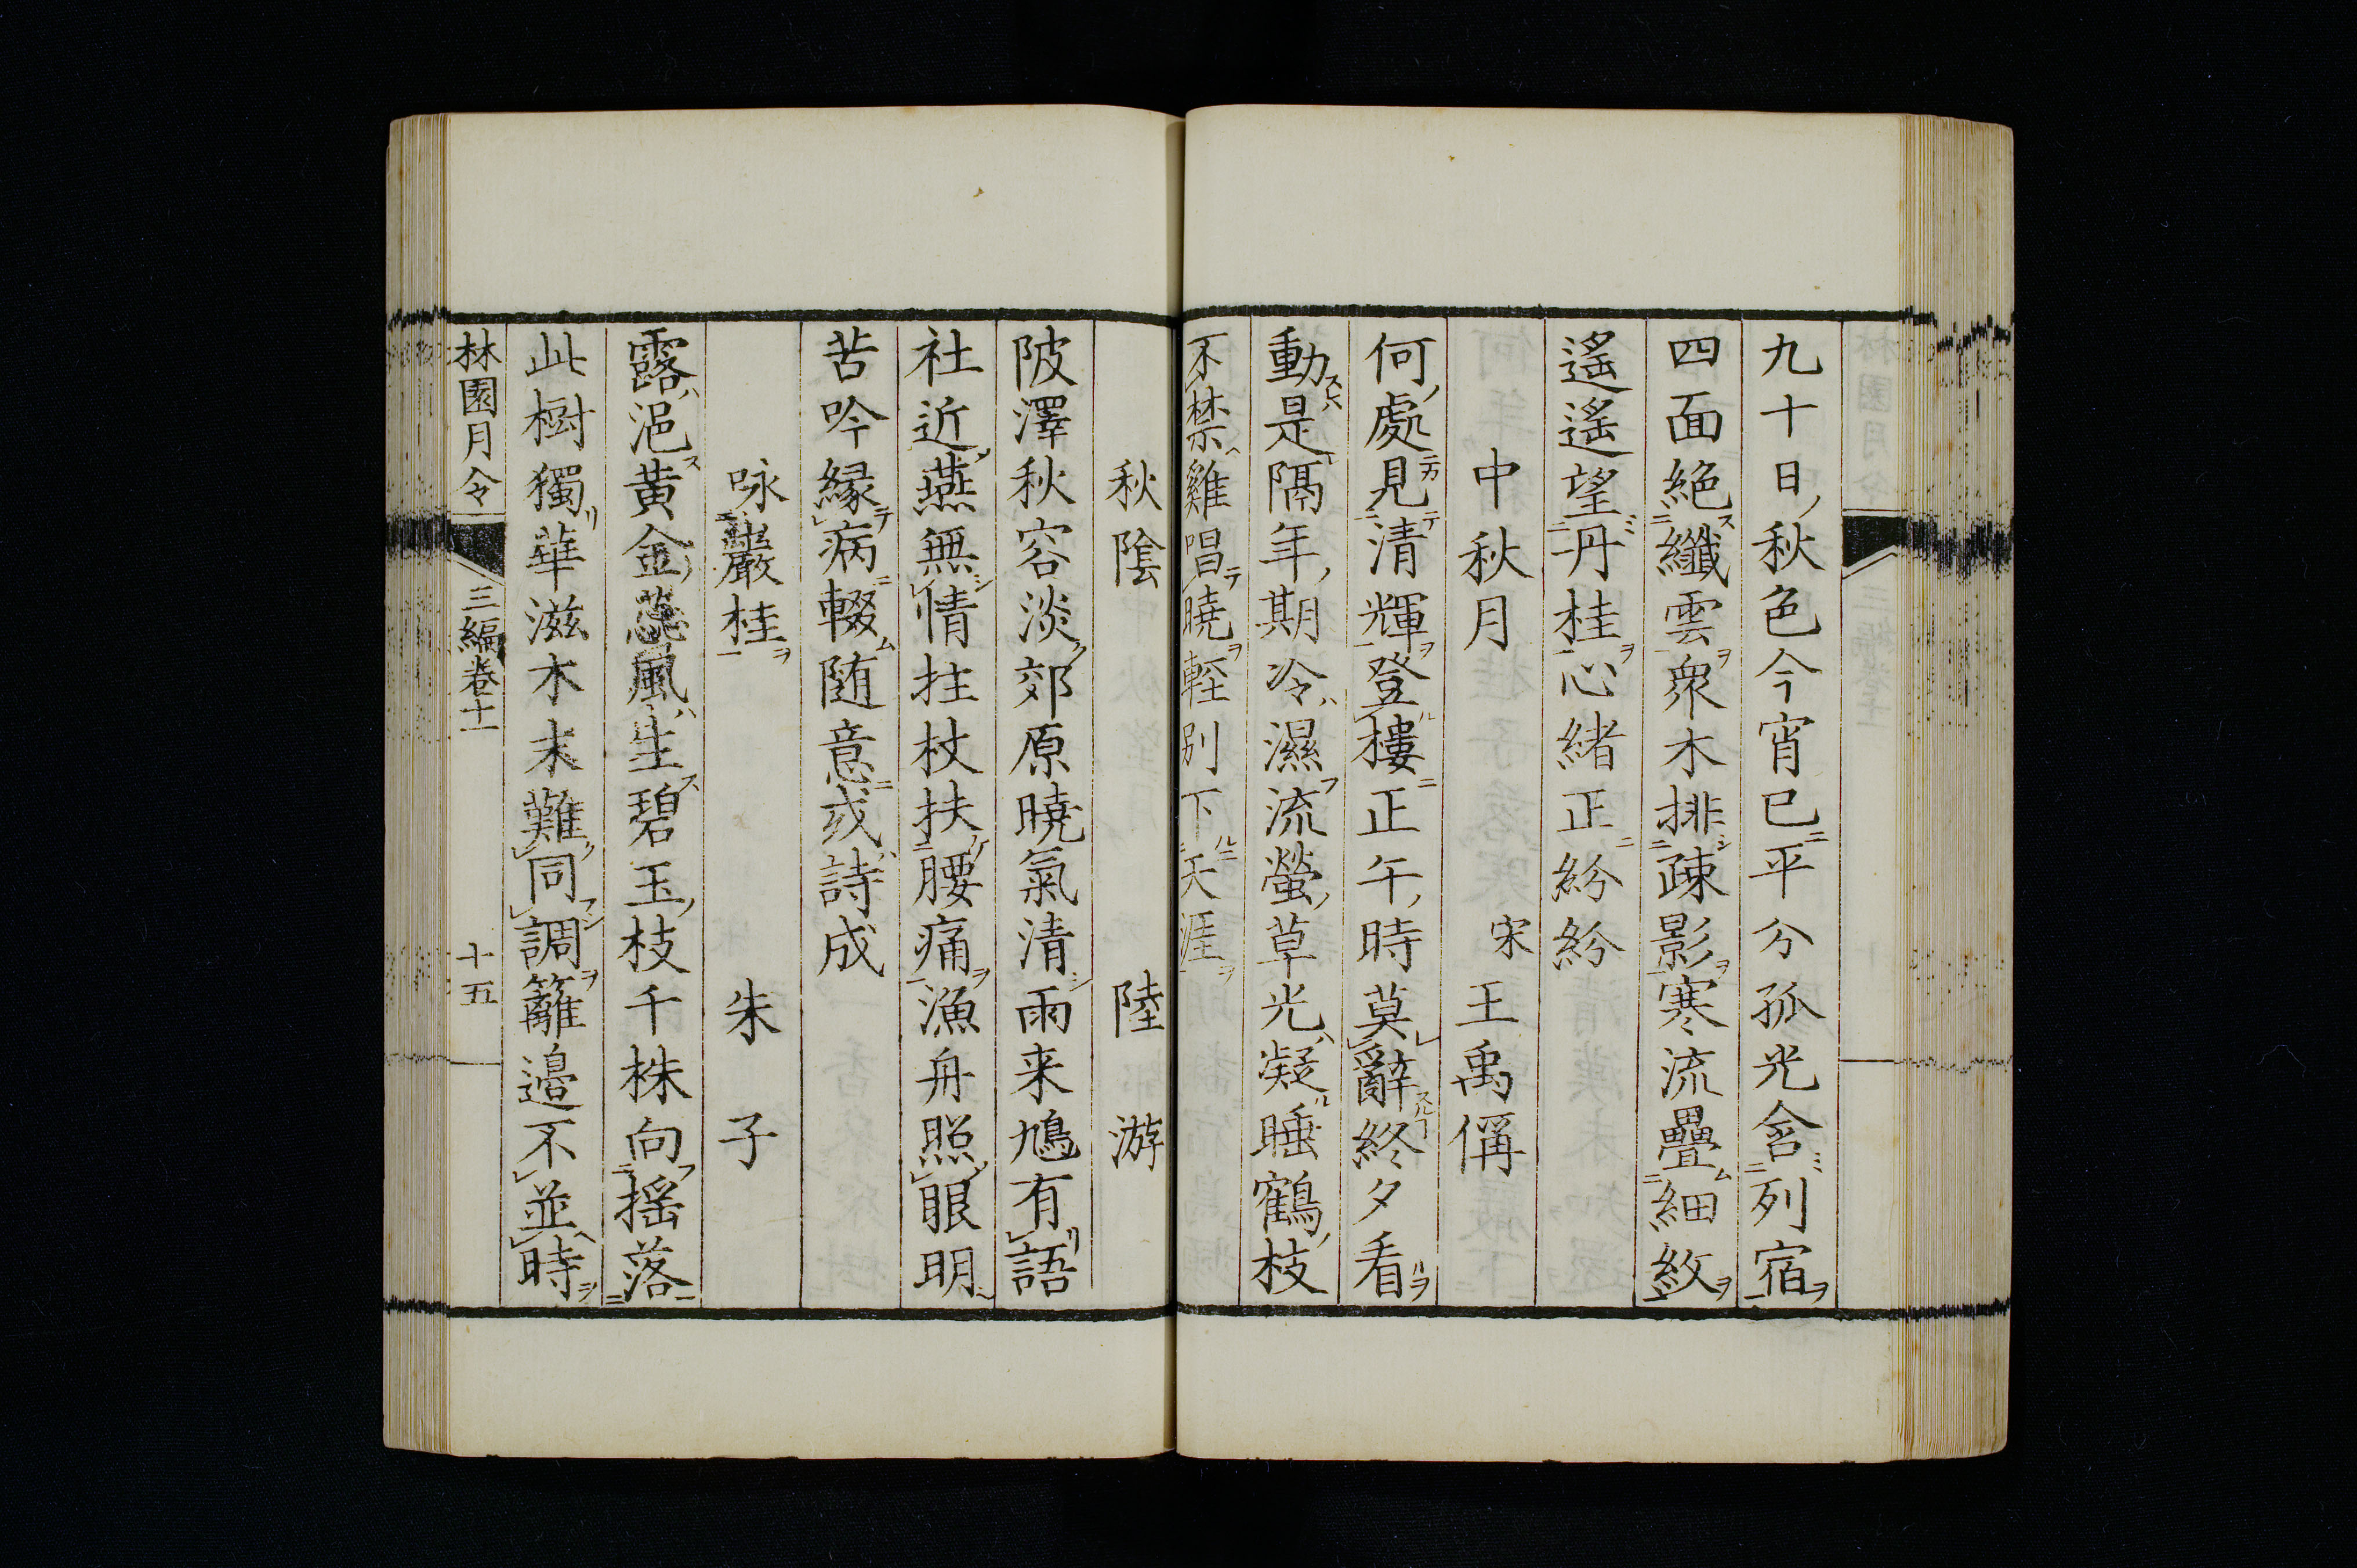 九十日秋色今宵已平分孤光含列宿
四面絶纎雲衆木排疎影寒流疊細紋
遙遙望丹桂心緒正紛紛
中秋月　宋　王禹偁
何處見清輝登樓正午時莫辭終夕看
動是隔年期冷濕流螢草光凝睡鶴枝
不禁雞唱曉軽別下天涯
秋陰　陸游
陂澤秋容淡郊原曉氣清雨来鳩有語
社近燕無情拄杖扶腰痛漁舟照眼明
苦吟縁病輟随意或詩成
咏巖桂　朱子
露浥黄金蕊風生碧玉枝千株向揺落
此樹獨華滋木末難同調籬邉不並時
林園月令　三編巻十一　十五